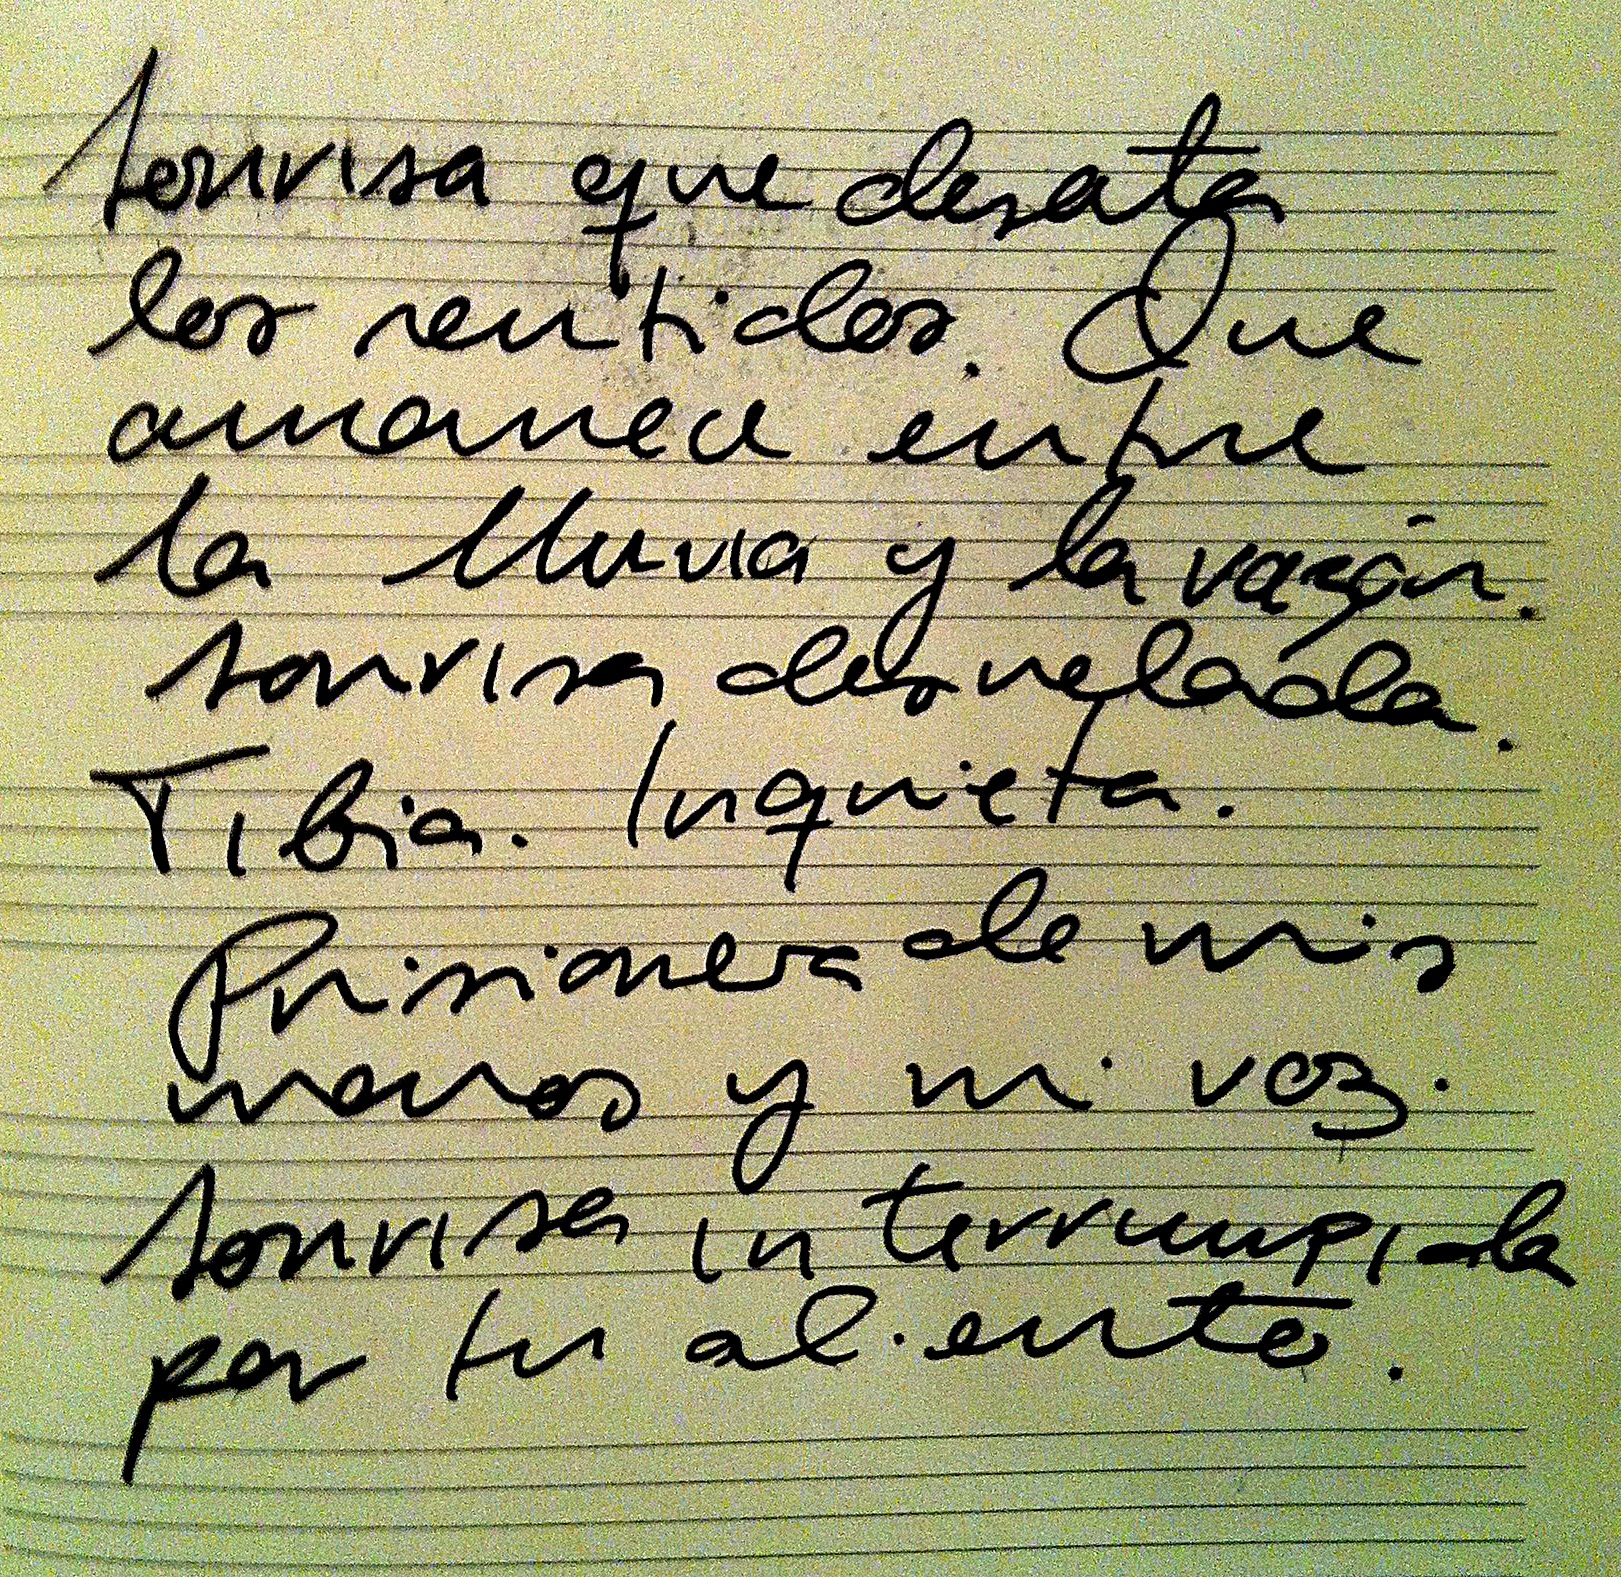 Sonrisa que desata
los sentidos. Que
amanece entre
la lluvia y la razón.
Sonrisa desvelada.
Tibia. Inquieta.
Prisionera de mis
manos y mi voz.
Sonrisa interrumpida
por tu aliento.